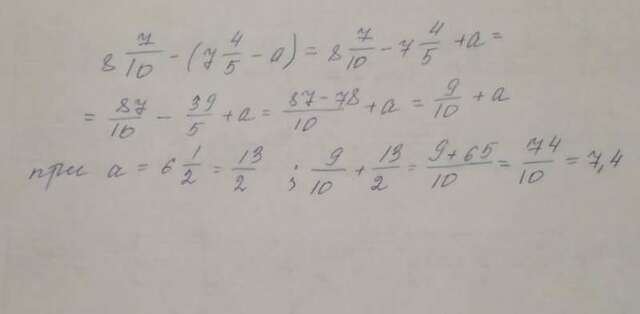 8 7/10 - (7 4/5 - a) = 8 7/10 - 7 4/5 + a =
= 87/10 - 39/5 + a = 87-78/10 + a = 9/10 + a
при a = 6 1/2 = 13/2 ; 9/10 + 13/2 = 9+65/10 = 74/10 = 7,4